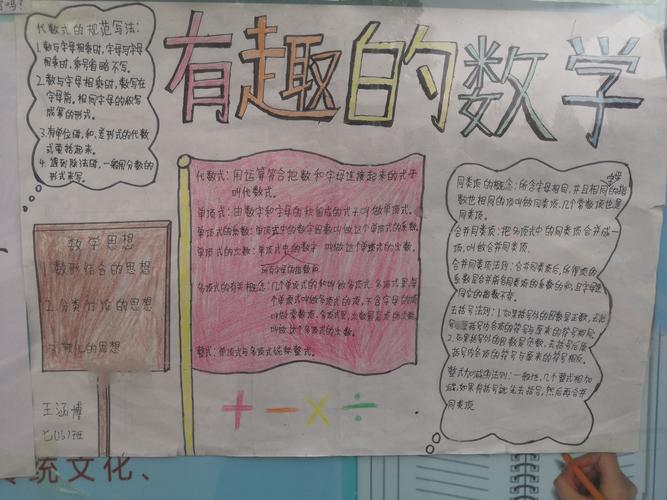 有趣的数学
代数式的规范写法:
1.数与字母相乘时,字母与字母
相乘时,乘号省略不写。
2.数与字母相乘时,数写在
字母前。相同字母的积写
成幂的形式。
3.有单位时,和、差形式的代数
式要括起来。
4.遇到除法时,一般用分数的
形式来写。
数学思想
1.数形结合的思想
2.分类讨论的思想
3.转化的思想
王涵博
七(16)班
代数式:用运算符合把数和字母连接起来的式子
叫代数式。
单项式:由数字和字母的积组成的式子叫做单项式。
单项式的系数:单项式中的数字因数叫做这个单项式的系数。
单项式的次数:单项式中的数字 叫做这个单项式的次数。
所有字母的指数和
多项式的有关概念:几个单项式的和叫做多项式。多项式里,每
个单项式叫做多项式的项,不含字母的项
叫做常数项。多项式里,次数最高项的次数,
叫做这个多项式的次数。
整式:单项式与多项式统称整式。
+ − × ÷
同类项的概念:所含字母相同,并且相同的指
字母
数也相同的项叫做同类项。几个常数项也是
同类项。
合并同类项:把多项式中的同类项合并成一
项,叫做合并同类项。
合并同类项法则:合并同类项后,所得项的
系数是合并前各同类项的系数的和,且字母连
同它的指数不变。
去括号法则:1.如果括号外的因数是正数,去括
号后原括号内各项的符号与原来的符号相同;
2.如果括号外的因数是负数,去括号后原
括号内各项的符号与原来的符号相反。
整式加减法则:一般地,几个整式相加
减,如果有括号就先去括号,然后再合并
同类项
传统文化、